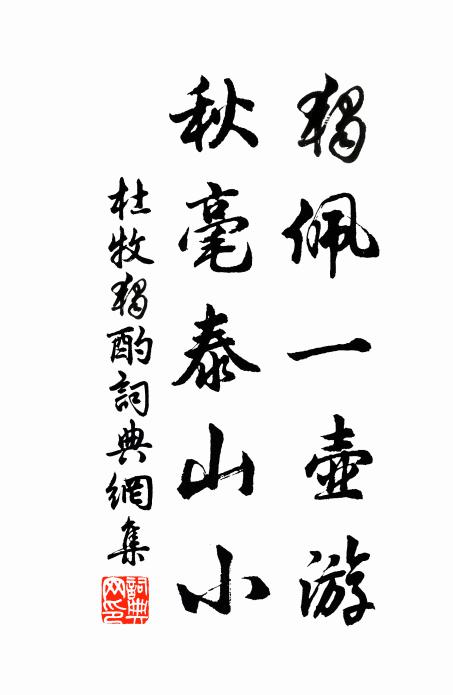 獨佩一壺游
秋毫泰山小
杜牧獨酌詞典網集